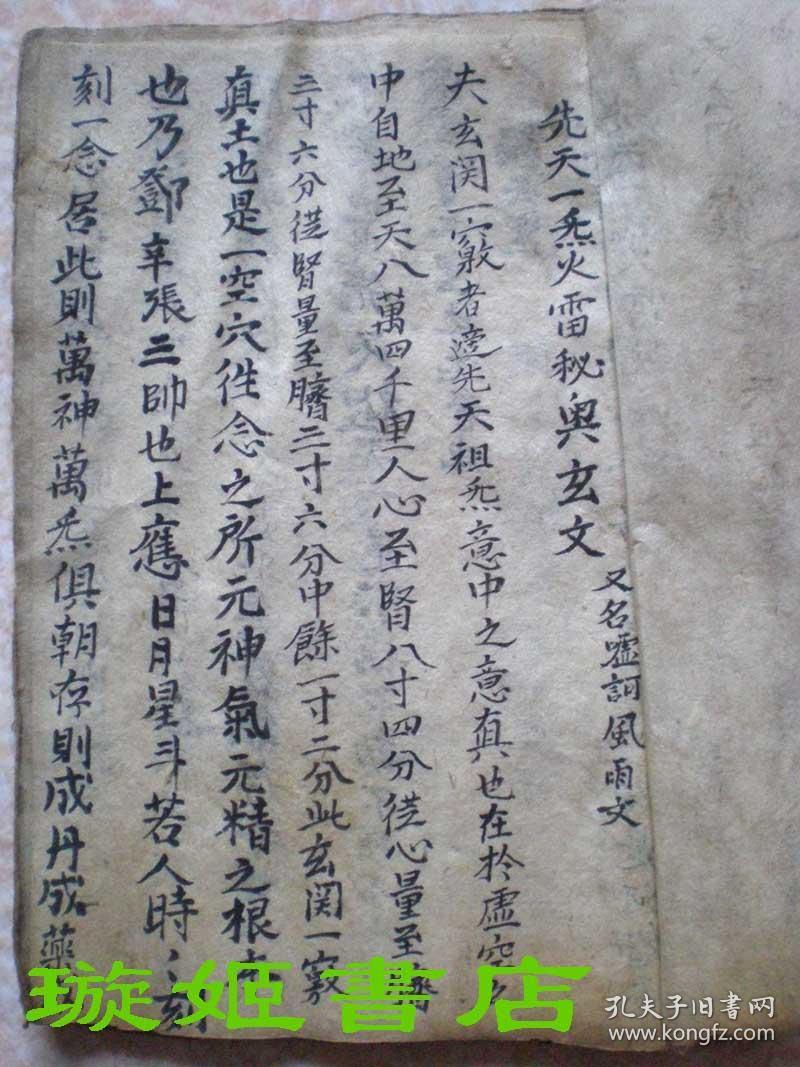 先天一炁火雷秘奥玄文
又名噓訶風雨文
夫玄関一竅者遶先天祖炁意中之意真也在扵虚空之
中自地至天八萬四千里人心至腎八寸四分從心量至臍
三寸六分從腎量至臍三寸六分中餘一寸二分此玄関一竅
真土也是一空穴徃念之所元神氣元精之根本
也乃鄧辛張三帥也上應日月星斗若人時〻刻
刻一念居此則萬神萬炁俱朝存則成丹成藥
璇姬書店
孔夫子旧書网
www.kongfz.com